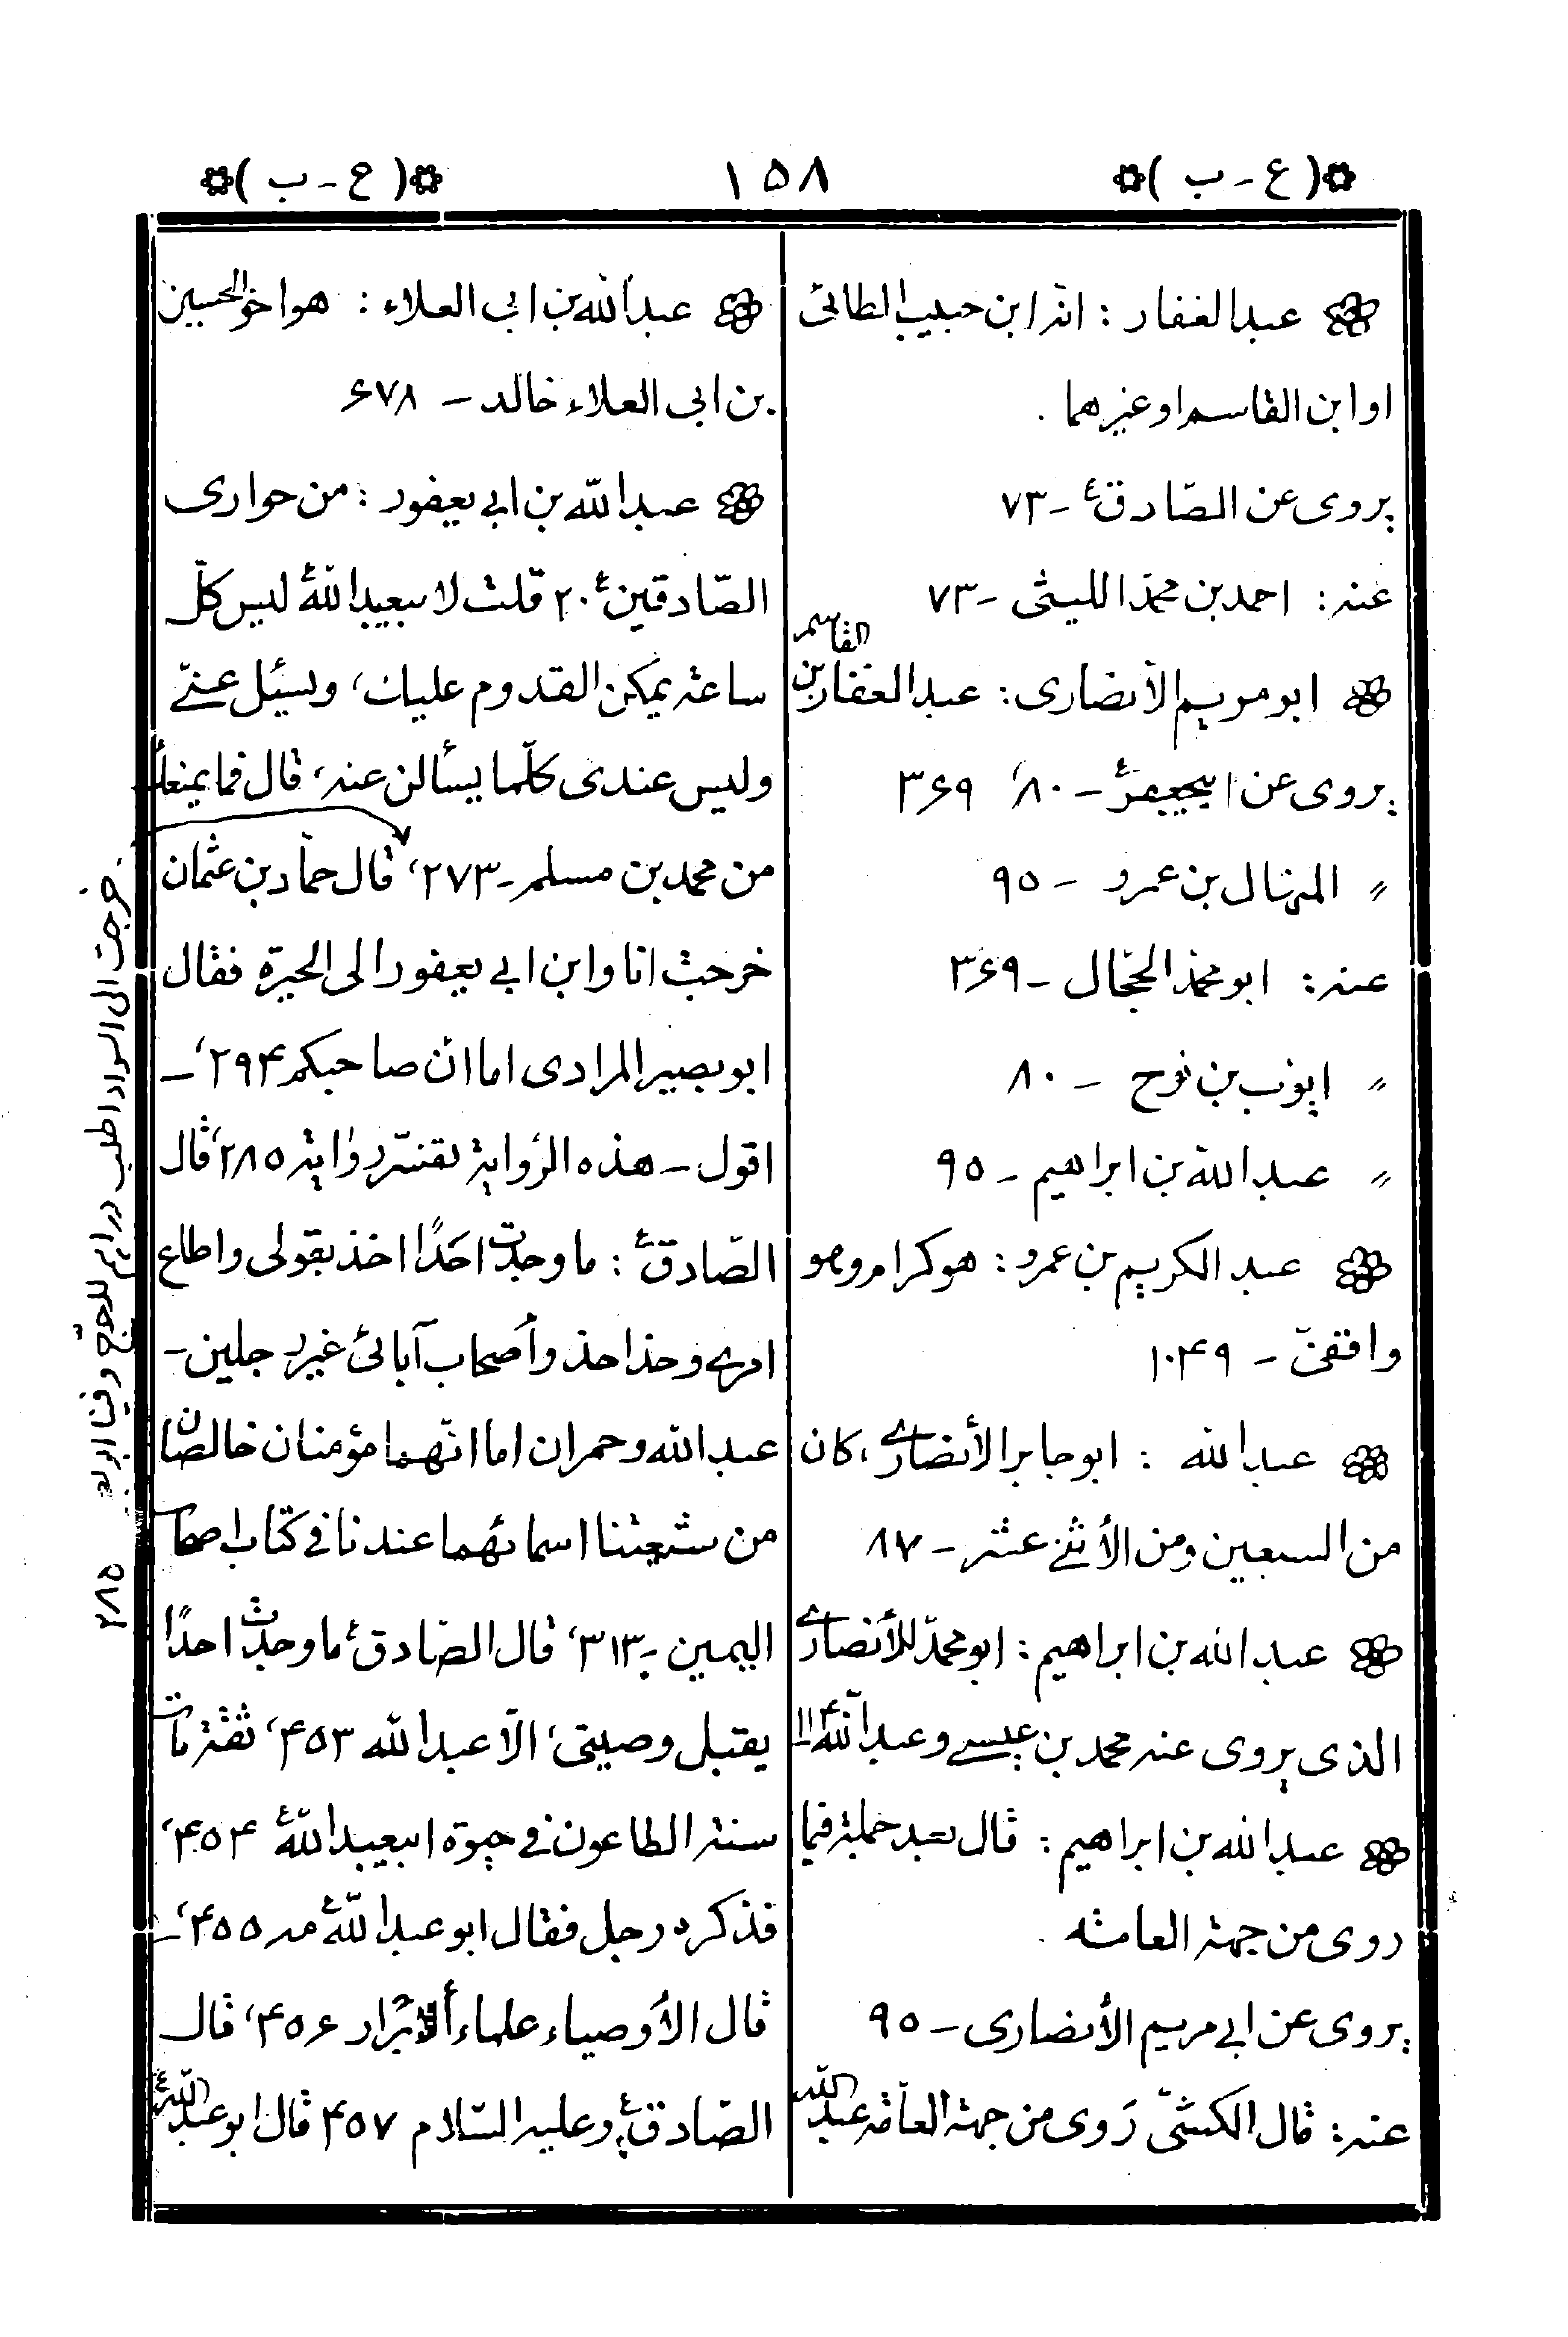 (ع - ب)
١٥٨
(ع - ب)
عبدالغفار : انه ابن حبيب الطائى
او ابن القاسم او غيرهما .
يروى عن الصّادقؑ - ٧٣
عنه : احمد بن محمد الليثى - ٧٣
ابو مريم الأنصارى : عبد الغفار بن القاسم
يروى عن ابيجعفرؑ - ٨٠، ٣۶٩
〃 المنهال بن عمرو - ٩٥
عنه : ابو محمد الحجّال - ٣۶٩
〃 ايوب بن نوح - ٨٠
〃 عبد الله بن ابراهيم - ٩٥
عبد الكريم بن عمرو : هو كرام وهو
واقفىّ - ١٠۴٩
عبد الله : ابو جابر الأنصارى، كان
من السبعين ومن الأثنى عشر - ٨٧
عبد الله بن ابراهيم : ابو محمد للأنصارى
الذى يروى عنه محمد بن عيسى وعبد الله
عبد الله بن ابراهيم : قال بعد جملة فيما
روى من جهة العامّه .
يروى عن ابى مريم الأنصارى - ٩٥
عنه : قال الكشىّ رَوى من جهة العامّه عبد الله
عبد الله بن ابى العلاء : هو اخو الحسين
بن ابى العلاء خالد - ۶٧٨
عبد الله بن ابى يعفور : من حوارى
الصّادقينؑ ٢٠ قلت لابيعبد اللهؑ ليس كلّ
ساعة يمكن القدوم عليك، ويسئل عنّى
وليس عندى كلّما يسألنى عنه، قال فما يمنعك
من محمد بن مسلم - ٢٧٣، قال حمّاد بن عثمان
خرجت انا وابن ابى يعفور الى الحيرة فقال
ابو بصير المرادى اما انّ صاحبكم ٢٩۴، -
اقول - هذه الرّواية تفسّر رواية ٢٨٥، قال
الصّادقؑ : ما وجدت احَدًا اخذ بقولى واطاع
امرى وحذا حذو أصحاب آبائى غير رجلين -
عبد الله وحمران اما انّهما مؤمنان خالصان
من شيعتنا اسمائهما عندنا فى كتاب اصحاب
اليمين - ٣١٣، قال الصّادقؑ ما وجدت احدًا
يقبل وصيتى، الّا عبد الله ۴٥٣، ثقة مات
سنة الطاعون فى حيوة ابيعبد اللهؑ ۴٥۴،
فذكره رجل فقال ابو عبد اللهؑ مه ۴٥٥، -
قال الأوصياء علماء أبْرار ۴٥۶، قال
الصّادقؑ وعليه السّلام ۴٥٧ قال ابو عبد اللهؑ
خرجت الى السواد اطلب دراهم للحجّ وفينا ابو
٢٨٥